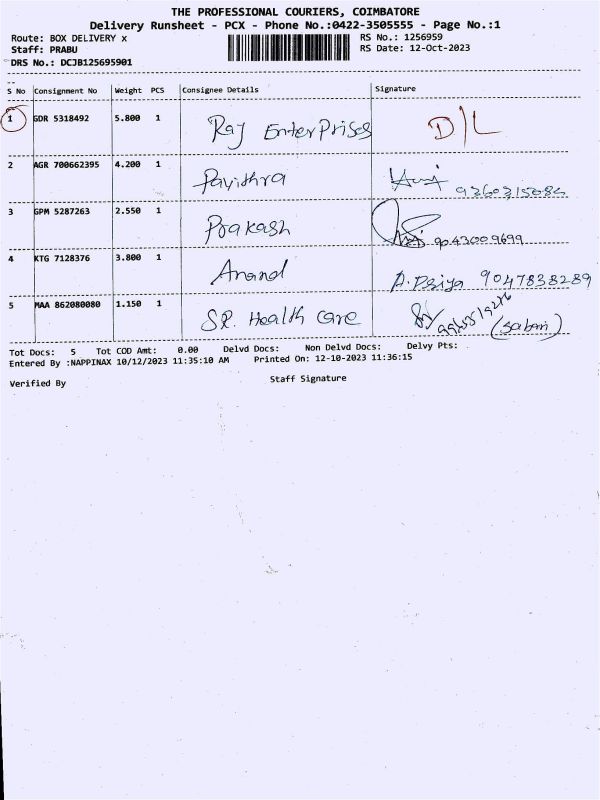 THE PROFESSIONAL COURIERS, COIMBATORE
Delivery Runsheet - PCX - Phone No.:0422-3505555 - Page No.:1
Route: BOX DELIVERY x RS No.: 1256959
Staff: PRABU RS Date: 12-Oct-2023
DRS No.: DCJB125695901
S No Consignment No Weight PCS Consignee Details Signature
1 GDR 5318492 5.800 1 Raj Enterprises D/L
2 AGR 700662395 4.200 1 Pavithra
3 GPM 5287263 2.550 1 Prakash 9043009699
4 KTG 7128376 3.800 1 Anand A.Priya 9047838289
5 MAA 862080080 1.150 1 SR. Health care (Sabari)
Tot Docs: 5 Tot COD Amt: 0.00 Delvd Docs: Non Delvd Docs: Delvy Pts:
Entered By :NAPPINAX 10/12/2023 11:35:10 AM Printed On: 12-10-2023 11:36:15
Verified By Staff Signature